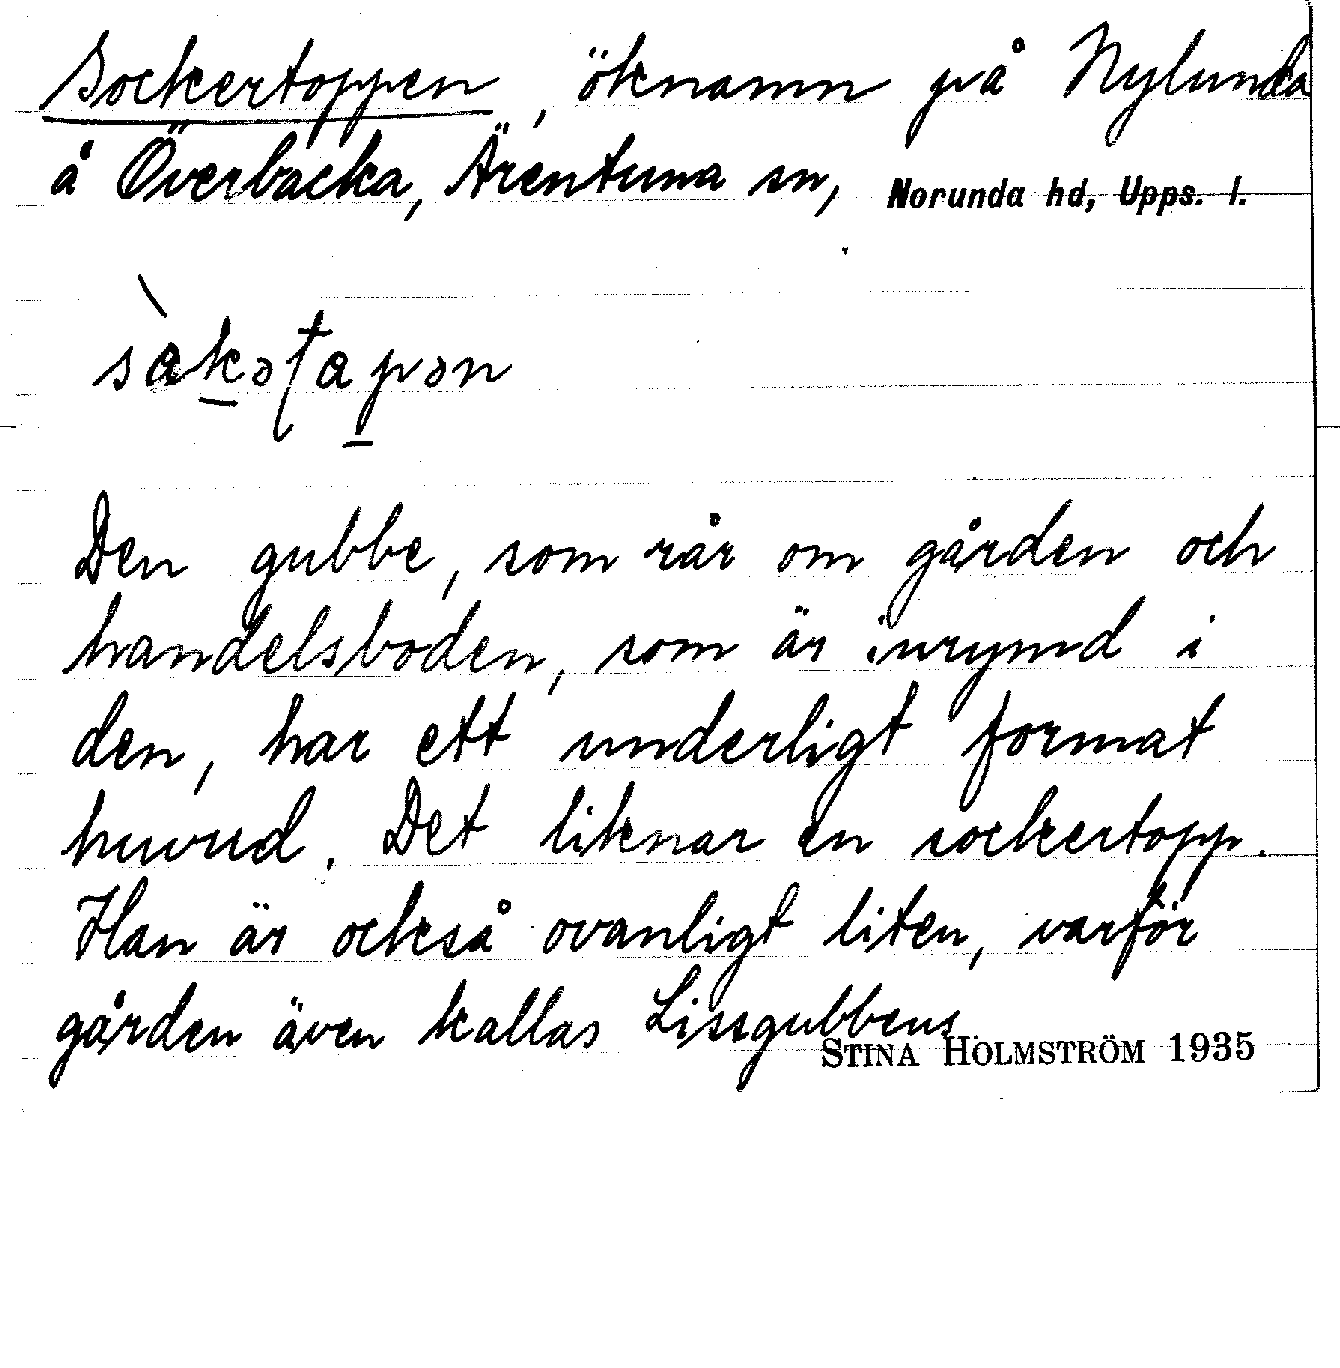 Sockertoppen, öknamn på Nylunda
å Överbacka, Ärentuna sn, Norunda hd, Upps. l.
sàkəʈapən
Den gubbe, som rår om gården och
handelsboden, som är inrymd i
den, har ett underligt format
huvud. Det liknar en sockertopp.
Han är också ovanligt liten, varför
gården även kallas Lissgubbens
STINA HOLMSTRÖM 1935